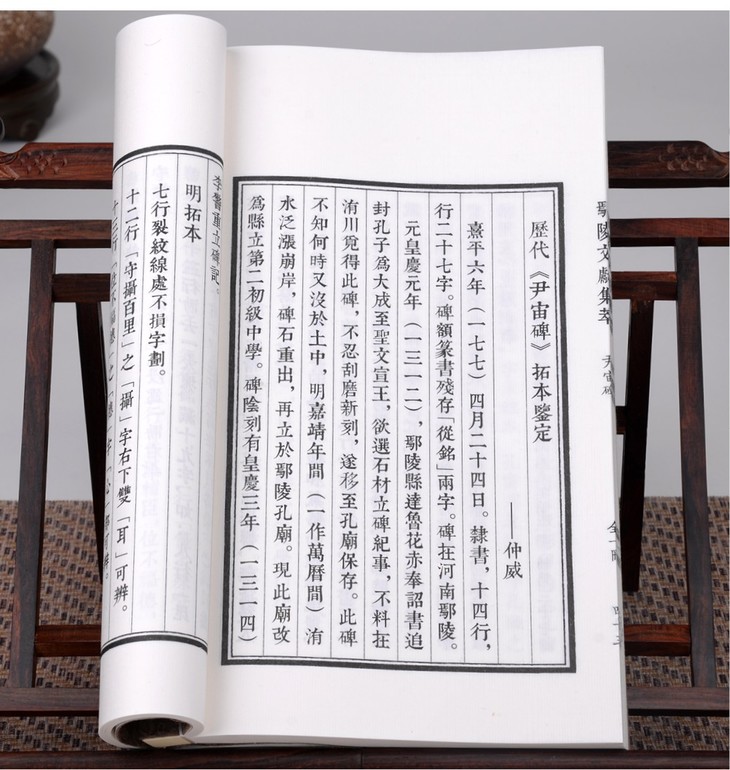 鄢陵文獻集萃
尹宙碑
歷代《尹宙碑》拓本鑒定
——仲威
熹平六年（一七七）四月二十四日。隸書，十四行，
行二十七字。碑額篆書殘存「從銘」兩字。碑在河南鄢陵。
元皇慶元年（一三一二），鄢陵縣達魯花赤奉詔書追
封孔子爲大成至聖文宣王，欲選石材立碑紀事，不料在
洧川覓得此碑，不忍刮磨新刻，遂移至孔廟保存。此碑
不知何時又沒於土中，明嘉靖年間（一作萬曆間）洧
水泛漲崩岸，碑石重出，再立於鄢陵孔廟。現此廟改
爲縣立第二初級中學。碑陰刻有皇慶三年（一三一四）
重立碑記。
明拓本
七行裂紋線處不損字劃。
十二行「守攝百里」之「攝」字右下雙「耳」可辨。